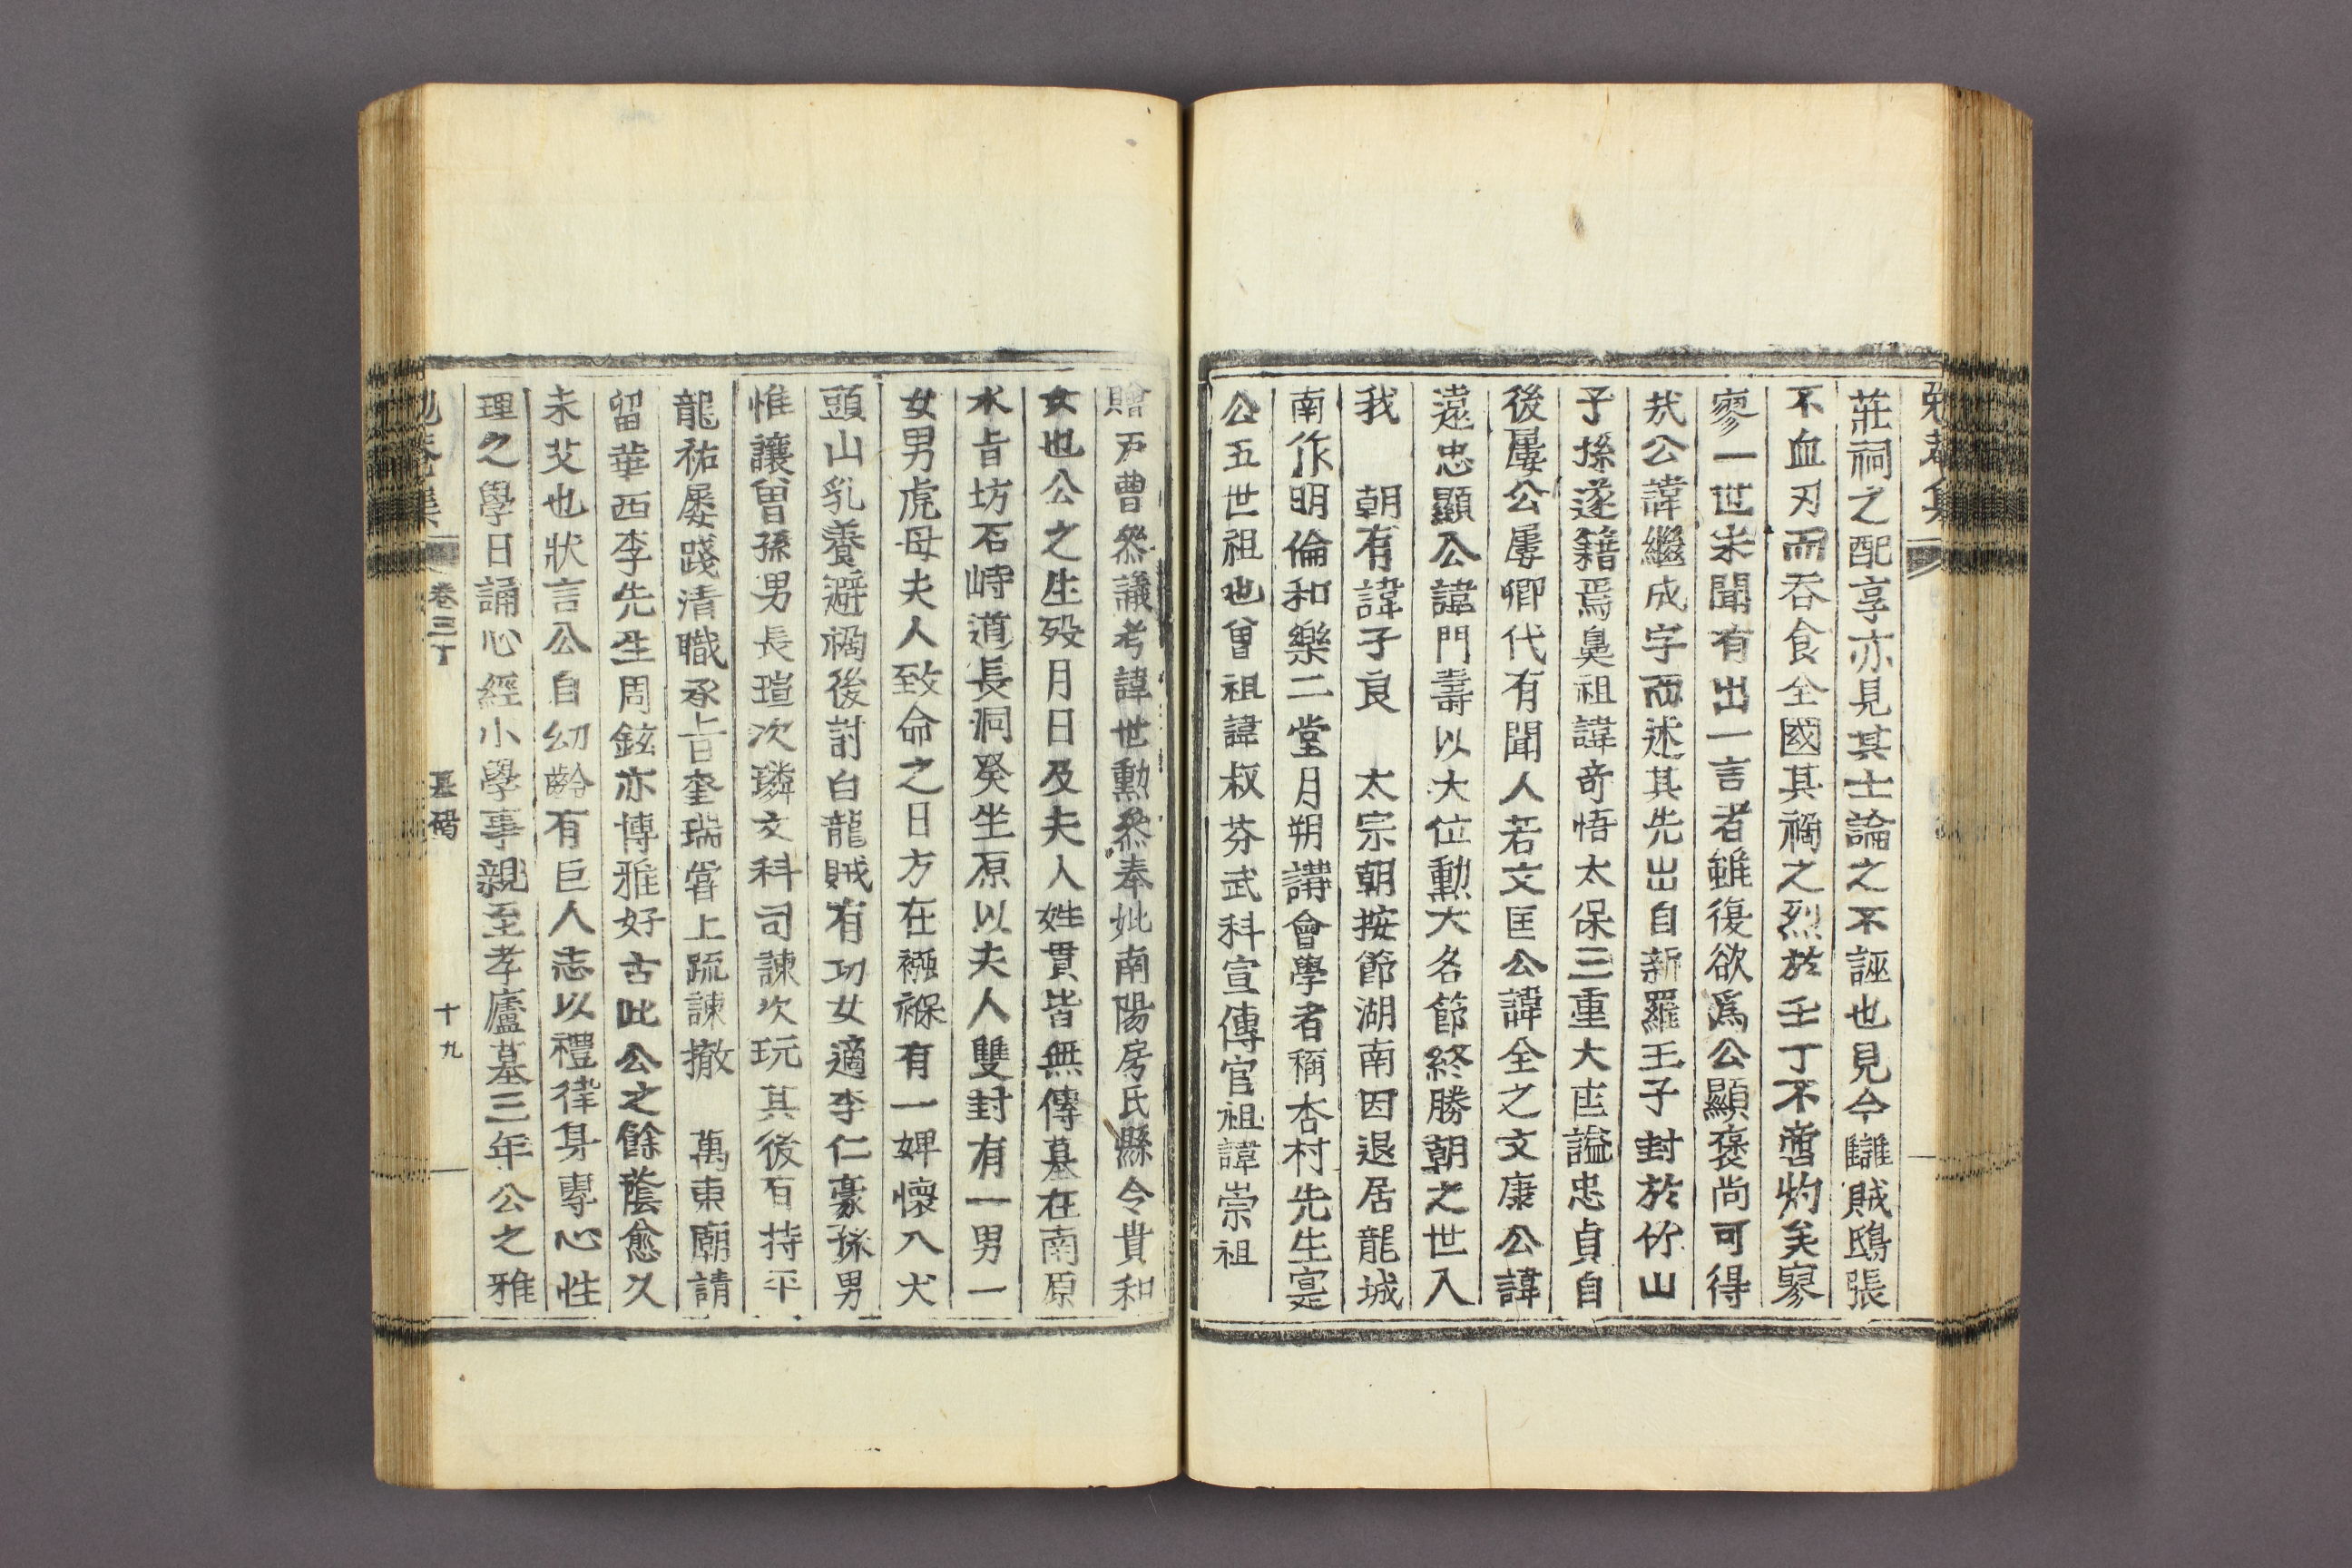 莊祠之配享亦見其士論之不誣也見今讎賊鴟張
不血刃而吞食全國其禍之烈於壬丁不啻灼矣寥
寥一世未聞有出一言者雖復欲爲公顯褒尚可得
㦲公諱繼成字而述其先出自新羅王子封於竹山
子孫遂籍焉鼻祖諱奇悟太保三重大匡謚忠貞自
後屢公屢卿代有聞人若文匡公諱全之文康公諱
遠忠顯公諱門壽以大位勳大名節終勝朝之世入
我　朝有諱子良　太宗朝按節湖南因退居龍城
南作明倫和樂二堂月朔講會學者稱杏村先生寔
公五世祖也曾祖諱叔芬武科宣傳官祖諱崇祖
贈戶曹叅議考諱世勳叅奉妣南陽房氏縣令貴和
女也公之生歿月日及夫人姓貫皆無傳墓在南原
水旨坊石峙道長洞癸坐原以夫人雙封有一男一
女男虎母夫人致命之日方在襁褓有一婢懷入犬
頭山乳養避禍後討白龍賊有功女適李仁豪孫男
惟讓曾孫男長瑄次璘文科司諫次玩其後有持平
龍祐屢踐清職承旨奎瑞嘗上疏諫撤　萬東廟請
留華西李先生周鉉亦博雅好古此公之餘蔭愈久
未艾也狀言公自幼齡有巨人志以禮律身專心性
理之學日誦心經小學事親至孝廬墓三年公之雅
卷三丁　墓碣　十九